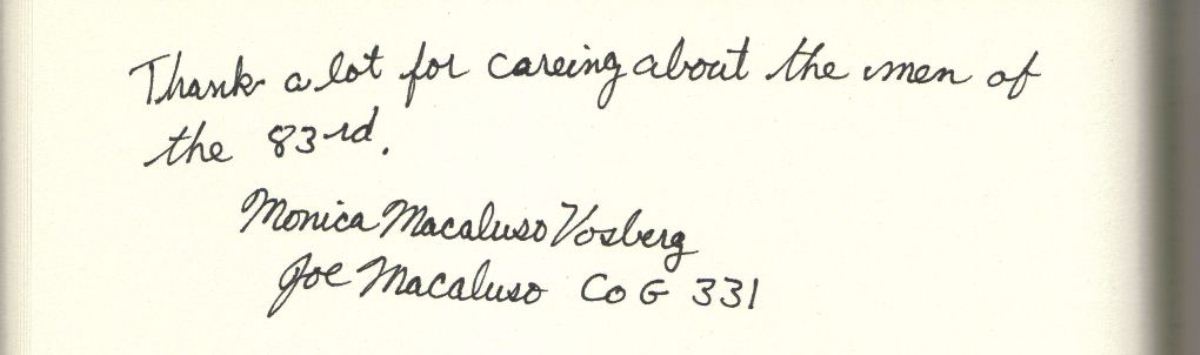 Thank a lot for careing about the men of
the 83rd.
Monica Macaluso Vosberg
Joe Macaluso Co G 331